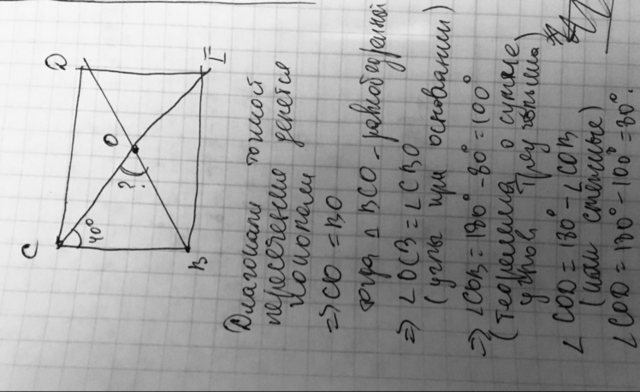 C
D
40°
O
?
B
E
Диагонали точкой
пересечения делется
пополам
⇒ CO = BO
тогда Δ BCO - равнобедренный
⇒ ∠OCB = ∠CBO
(углы при основании)
⇒ ∠COB = 180° - 80° = 100°
(теорема о сумме
углов треугольника)
∠COD = 180° - ∠COB
(как смежные)
∠COD = 180° - 100° = 80°